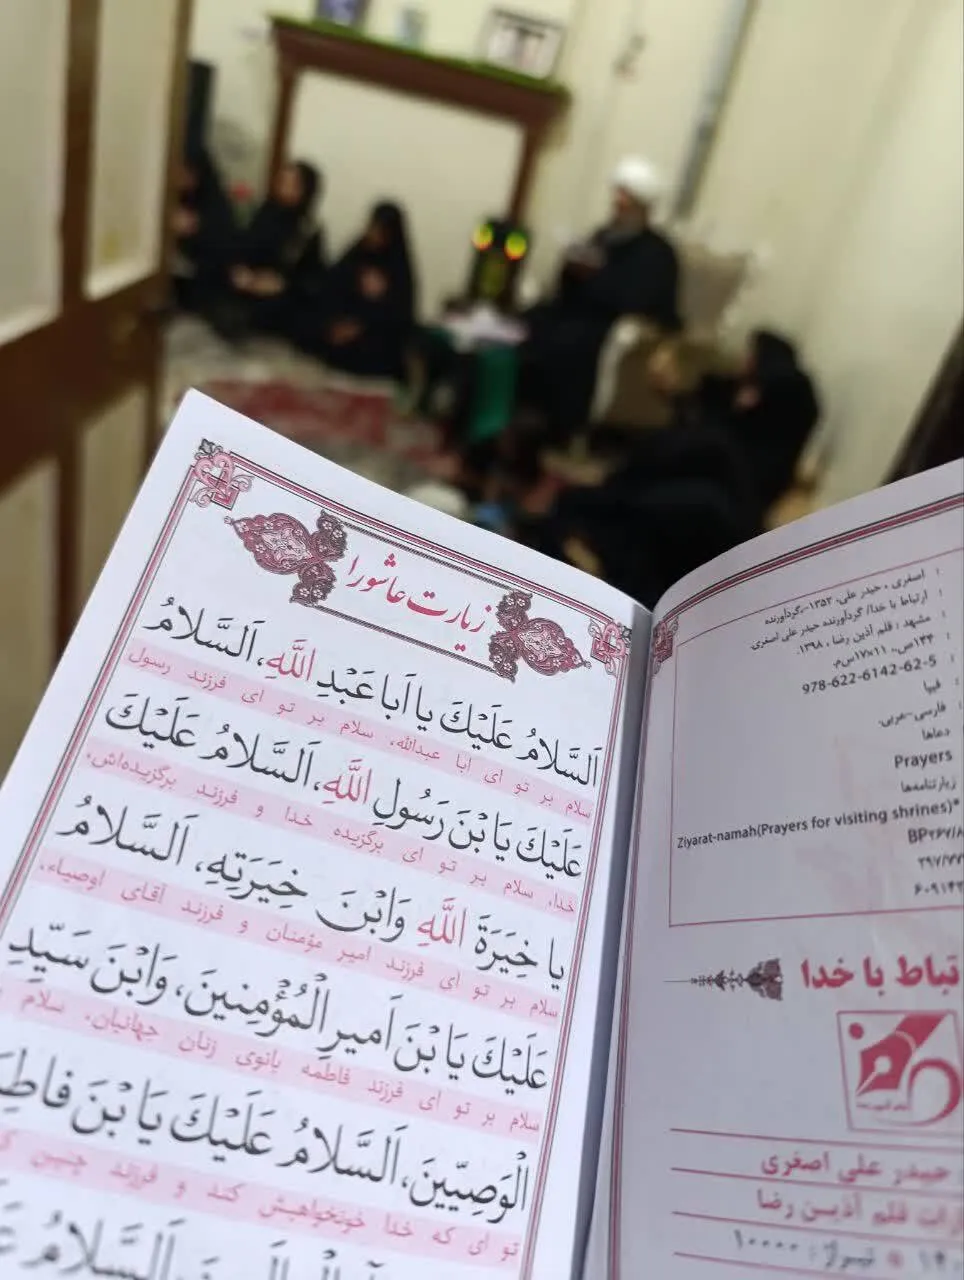 زیارت عاشورا
اَلسَّلامُ عَلَیْکَ یا اَبا عَبْدِ اللَّهِ، اَلسَّلامُ
سلام بر تو ای ابا عبدالله، سلام بر تو ای فرزند رسول
عَلَیْکَ یَا بْنَ رَسُولِ اللَّهِ، اَلسَّلامُ عَلَیْکَ
خدا، سلام بر تو ای برگزیده خدا و فرزند برگزیده‌اش،
یا خِیَرَةَ اللَّهِ وَابْنَ خِیَرَتِهِ، اَلسَّلامُ
سلام بر تو ای فرزند امیر مؤمنان و فرزند آقای اوصیاء،
عَلَیْکَ یَا بْنَ اَمیرِ الْمُؤْمِنینَ، وَابْنَ سَیِّدِ
سلام بر تو ای فرزند فاطمه بانوی زنان جهانیان، سلام
الْوَصِیّینَ، اَلسَّلامُ عَلَیْکَ یَا بْنَ
تو ای که خدا خونخواهیش کند و فرزند چنین
اصغری، حیدر علی، ۱۳۵۳-،گردآورنده
ارتباط با خدا/ گردآورنده حیدر علی اصغری
مشهد : قلم آذین رضا ، ۱۳۹۸.
۱۴۴ص.، ۱۱×۱۷س‌م.
978-622-6142-62-5
فیپا
فارسی-عربی.
دعاها
Prayers
زیارتنامه‌ها
Ziyarat-namah(Prayers for visiting shrines)*
BP۲۶۷/۸
۲۹۷/۷۷
۶۰۹۱۴۲
تباط با خدا
حیدر علی اصغری
رات قلم آذین رضا
تیراژ : ۱۰۰۰۰